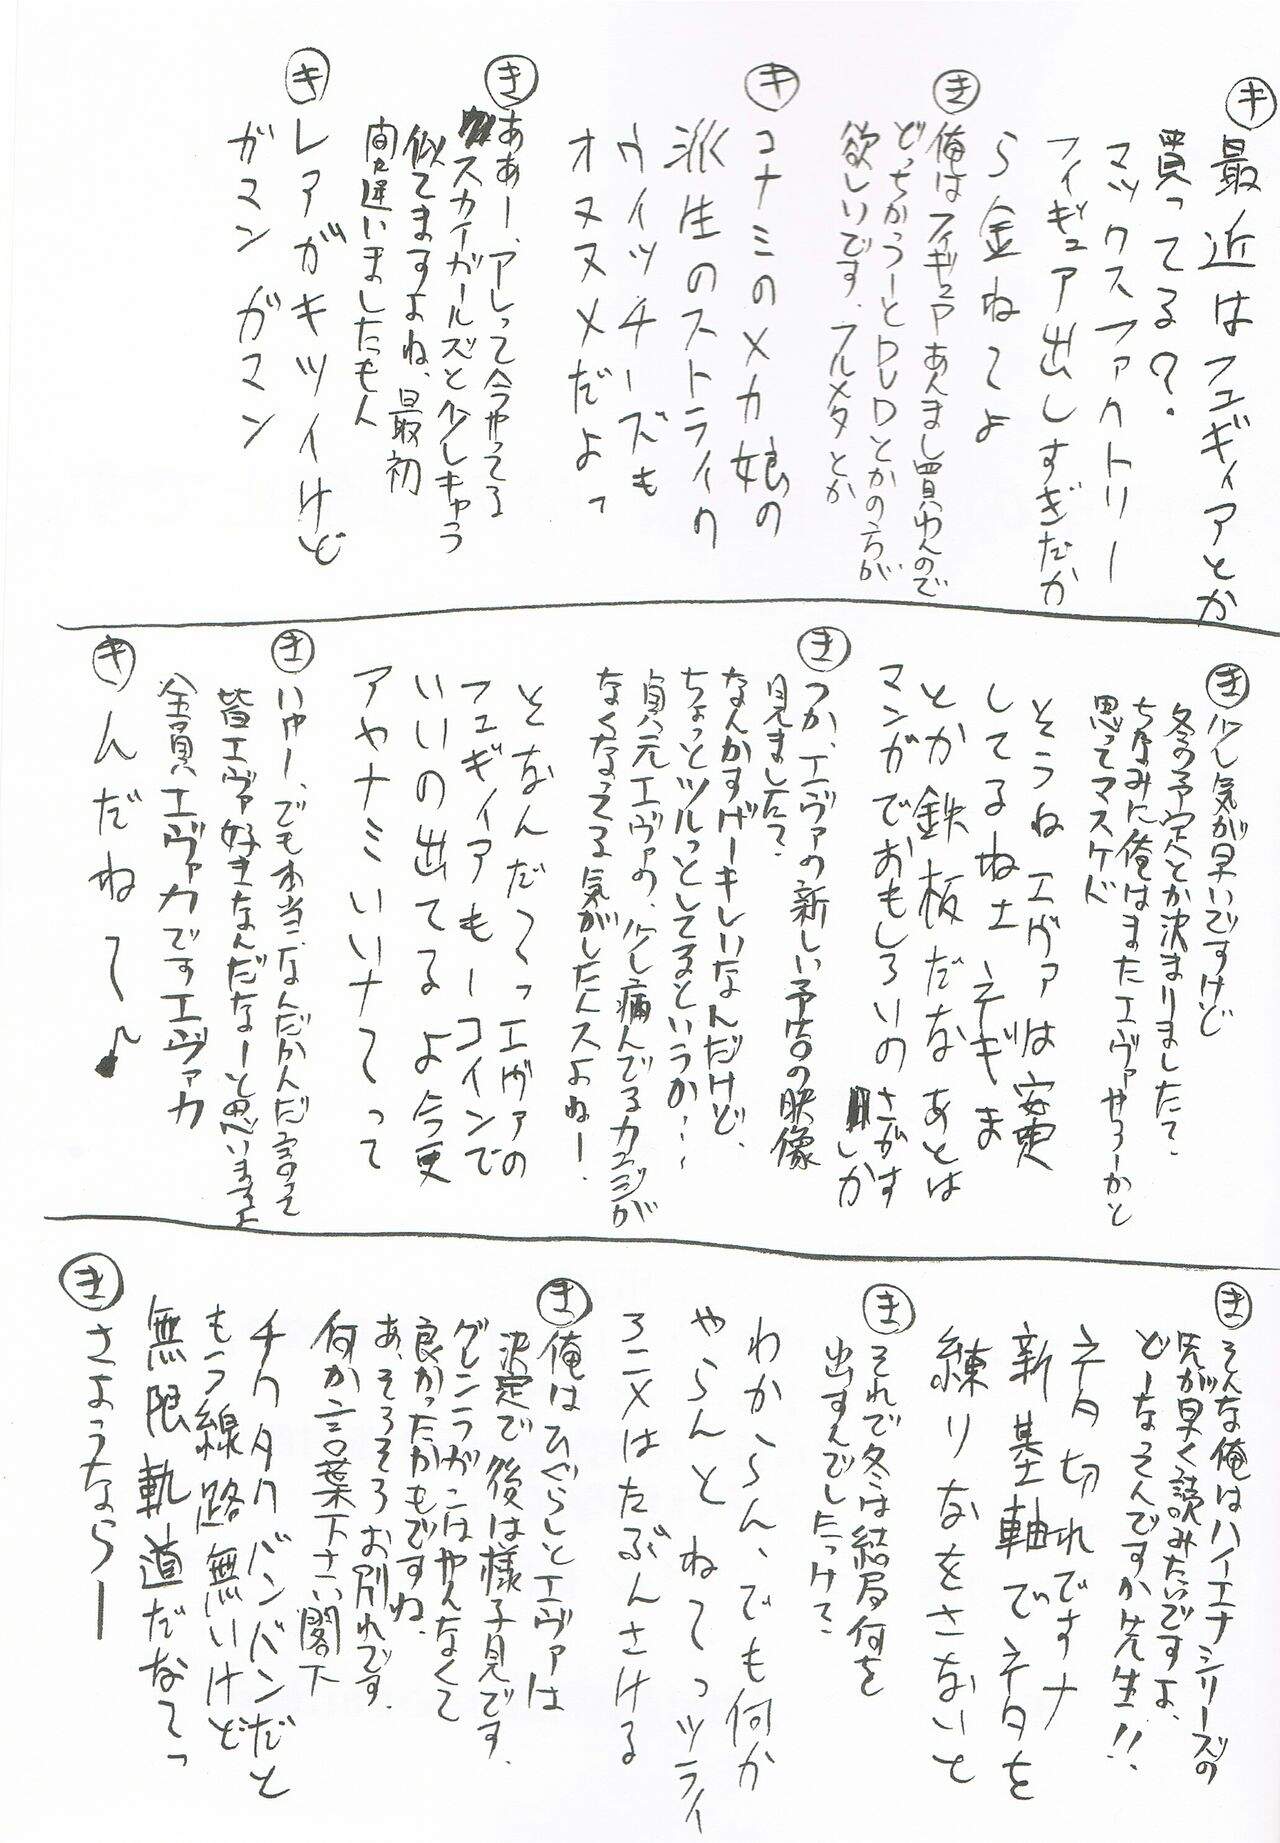 キ
最近はフュギィアとか
買ってる?
マックスファクトリー
フィギュア出しすぎだか
ら金ねてよ
き
俺はフィギュアあんまし買わんので
どっちかっつーとDVDとかの方が
欲しいです、フルメタとか
キ
コナミのメカ娘の
派生のストライク
ウィッチーズも
オヌヌメだよっ
き
ああー、アレって今やってる
スカイガールズと少しキャラ
似てますよね、最初
間違いましたもん
キ
レアがキツイけど
ガマンガマン
き
少し気が早いですけど
冬の予定とか決まりました?
ちなみに俺はまたエヴァやろーかと
思ってマスケド
そうねエヴァは安更
してるね土、ネギま
とか鉄板だなあとは
マンガでおもしろいのさがす
しか
き
つか、エヴァの新しい予告の映像
見ました?
なんかすげーキレイなんだけど、
ちょっとツルっとしてるというか…
貞元エヴァの、少し病んでるカンジが
なくなってる気がしたんスよねー!
となんだ〜っエヴァの
フュギィアもーコインで
いいの出てるよ今更
アヤナミいいナてって
き
いやー、でも本当、なんだかんだ言って
皆エヴァ好きなんだなーと思いますよ
全員エヴァ力ですエヴァ力
キ
んだね〜♪
き
そんな俺はハイエナシリーズの
先が早く読みたいですよ、
どーなそんですか先生!!
ネタ切れですナ
新基軸でネタを
練りなをさないと
き
それで冬は結局何を
出すんでしたっけ?
わからん、でも何か
やらんとねてっツライ
ろニメはたぶんさける
き
俺はひぐらしとエヴァは
決定で後は様子見です、
グレンラガンはやんなくて
良かったかもですね、
あ、そろそろお別れです、
何か言葉下さい閣下
チクタクバンバンだと
もう線路無いけど
無限軌道だなてっ
き
さようならー